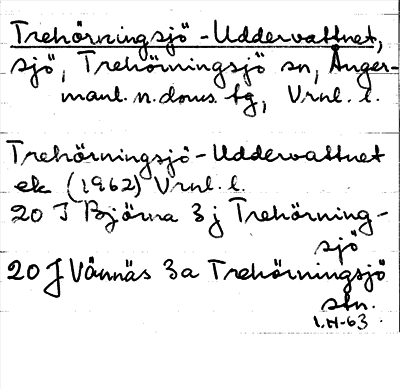 Trehörningsjö-Uddervattnet,
sjö, Trehörningsjö sn, Ånger-
manl. n. doms. tg, Vrnl. l.
Trehörningsjö-Uddervattnet
ek (1962) Vrnl. l.
20 I Björna 3 j Trehörning-
sjö
20 J Vännäs 3a Trehörningsjö
stn.
1.H-63